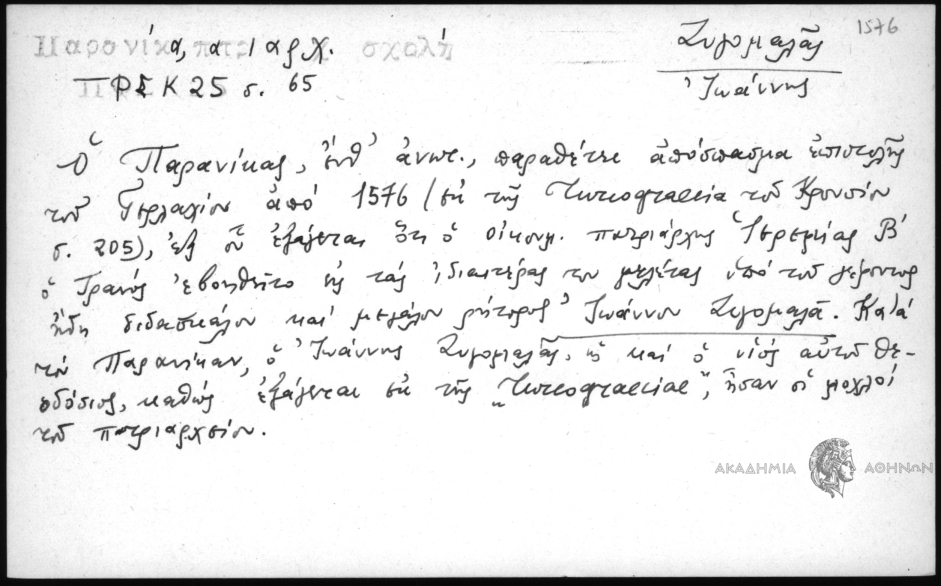 1576
Παρανίκα, πατριαρχ. σχολή
ΠΡΣΚ 25 σ. 65
Ζυγομαλᾶς
Ἰωάννης
Ὁ Παρανίκας, ἔνθ' ἀνωτ., παραθέτει ἀπόσπασμα ἐπιστολῆς
τοῦ Γερλαχίου ἀπό 1576 (ἐκ τῆς Turcograecia τοῦ Κρουσίου
σ. 205), ἐξ οὗ ἐξάγεται ὅτι ὁ οἰκουμ. πατριάρχης Ἱερεμίας Β'
ὁ Τρανός ἐβοηθεῖτο εἰς τάς ἰδιαιτέρας του μελέτας ὑπό τοῦ γέροντος
ἤδη διδασκάλου καί μεγάλου ρήτορος Ἰωάννου Ζυγομαλᾶ. Κατά
τόν Παρανίκαν, ὁ Ἰωάννης Ζυγομαλᾶς, ὡς καί ὁ υἱός αὐτοῦ Θε-
οδόσιος, καθώς ἐξάγεται ἐκ τῆς "Turcograeciae", ἦσαν οἱ μοχλοί
τοῦ πατριαρχείου.
ΑΚΑΔΗΜΙΑ ΑΘΗΝΩΝ